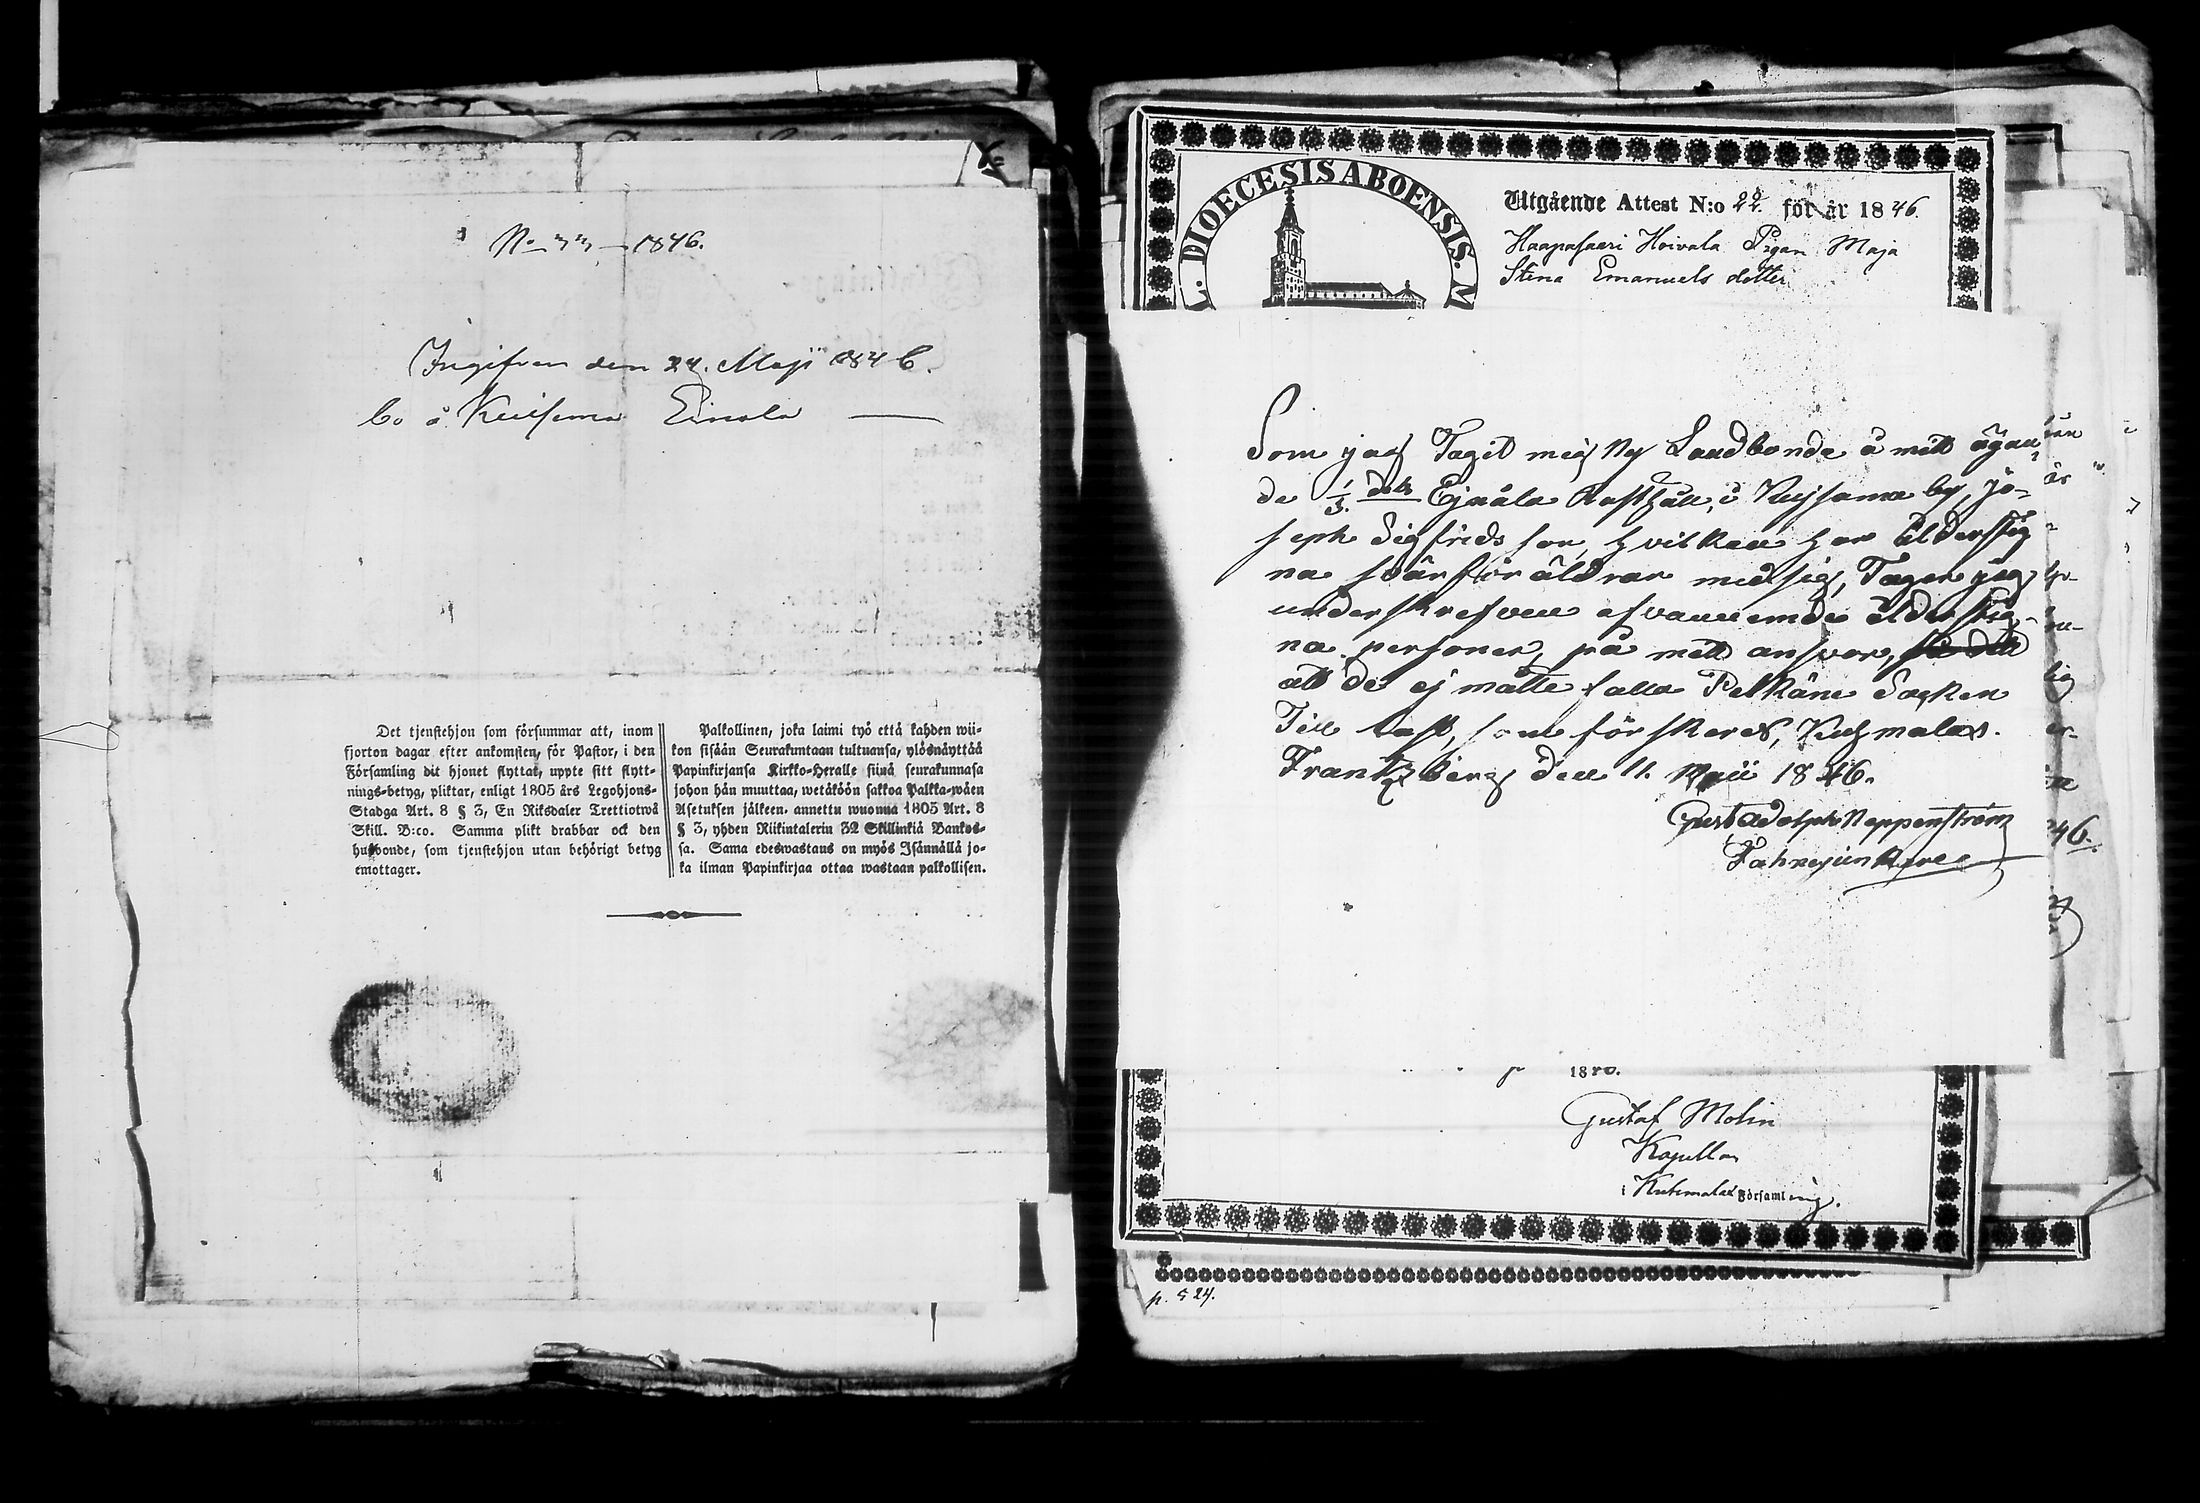 No 33 – 1846.
Ingifven den 24. Maji 1846.
bo å Kuisema Einola
Det tjenstehjon som försummar att, inom
fjorton dagar efter ankomsten, för Pastor, i den
Församling dit hjonet flyttat, uppte sitt flytt-
nings-betyg, pliktar, enligt 1805 års Legohjons-
Stadga Art. 8 § 3, En Riksdaler Trettiotwå
Skill. B:co. Samma plikt drabbar ock den
husbonde, som tjenstehjon utan behörigt betyg
emottager.
Palkollinen, joka laimi työ että kahden wii-
kon sisään Seurakuntaan tultuansa, ylösnäyttää
Papinkirjansa Kirkko-Heralle siinä seurakunnasa
johon hän muuttaa, wetäköön sakkoa Palkka-wäen
Asetuksen jälkeen annettu wuonna 1805 Art. 8
§ 3, yhden Riikintalerin 32 Skillinkiä Bankos-
sa. Sama edeswastaus on myös Isännällä jo-
ka ilman Papinkirjaa ottaa wastaan palkollisen.
DIOECESIS ABOENSIS. M
Utgående Attest N:o 22. för år 1846.
Haapasaari Hoivala Pigan Maja
Stina Emanuels dotter
Som jag Tagit mig Ny Landbonde å mitt ägan
de 1/3 dels Ejnäla Rusthåll, i Kujsama by, Jo-
seph Sigfrids son, hvilken har Ålderstig
na svärföräldrar med sig, Tager jag
underskrefven ofvannemde ålderstig-
na personer, på mitt ansvar,
att de ej måtte falla Pelkäne Socken
Till last, som försäkras, Kuhmalax.
Frantzberg den 11. Maii 1846.
Gust Adolph Neppenström
Fahnejunkare
46.
1846.
Gustaf Molin
Kapellan
i Kuhmalax Församling.
p. 524.